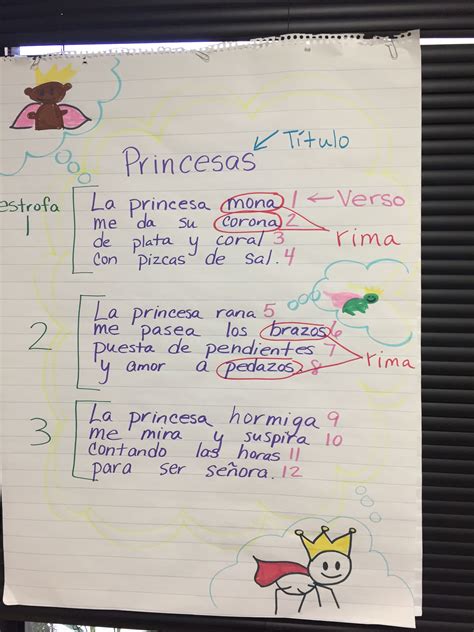 Título
Princesas
estrofa
1
La princesa mona 1 ← Verso
me da su corona 2
rima
de plata y coral 3
con pizcas de sal. 4
2
La princesa rana 5
me pasea los brazos 6
puesta de pendientes 7
rima
y amor a pedazos 8
3
La princesa hormiga 9
me mira y suspira 10
contando las horas 11
para ser señora. 12